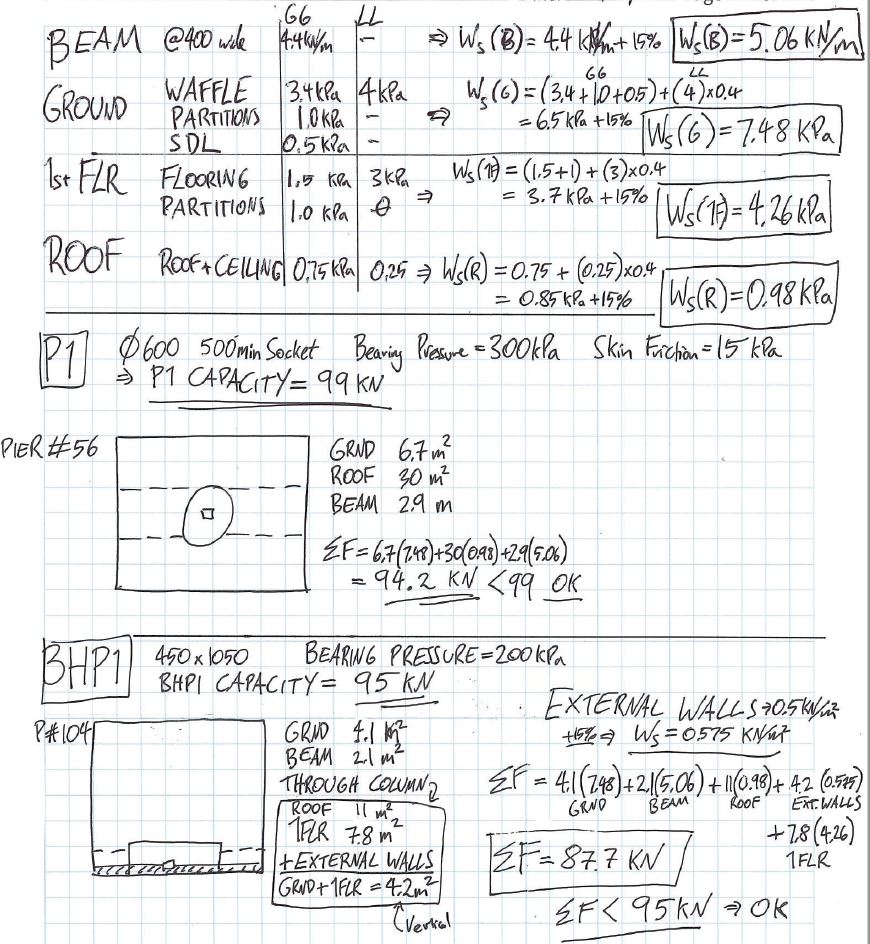 G6 LL
BEAM @400 wide 4.4kN/m - ⇒ Ws(B) = 4.4 kN/m + 15% Ws(B) = 5.06 KN/m
GROUND WAFFLE 3.4kPa 4kPa ⇒ Ws(G) = (3.4 + 1.0 + 0.5) + (4) x 0.4
G6 LL
PARTITIONS 1.0kPa - = 6.5 kPa + 15% Ws(G) = 7.48 KPa
SDL 0.5kPa -
1st FLR FLOORING 1.5 kPa 3kPa ⇒ Ws(1F) = (1.5+1) + (3)x0.4
PARTITIONS 1.0 kPa θ = 3.7 kPa + 15% Ws(1F) = 4.26 kPa
ROOF ROOF + CEILING 0.75kPa 0.25 ⇒ Ws(R) = 0.75 + (0.25)x0.4
= 0.85 kPa + 15% Ws(R) = 0.98 KPa
P1 Ø600 500min Socket Bearing Pressure = 300kPa Skin Friction = 15 kPa
⇒ P1 CAPACITY = 99 KN
PIER #56
GRND 6.7 m²
ROOF 30 m²
BEAM 2.9 m
ΣF = 6.7(7.48)+30(0.98)+2.9(5.06)
= 94.2 KN < 99 OK
BHP1 450 x 1050 BEARING PRESSURE = 200kPa
BHP1 CAPACITY = 95 KN
P#104
GRND 4.1 m²
BEAM 2.1 m²
THROUGH COLUMN
ROOF 11 m²
1FLR 7.8 m²
+ EXTERNAL WALLS
GRND + 1FLR = 4.2m²
Vertical
EXTERNAL WALLS ⇒ 0.5 KN/m²
+15% ⇒ Ws = 0.575 KN/m²
ΣF = 4.1(7.48) + 2.1(5.06) + 11(0.98) + 4.2 (0.575)
GRND BEAM ROOF EXT.WALLS
+ 7.8(4.26)
1FLR
ΣF = 87.7 KN
ΣF < 95KN ⇒ OK